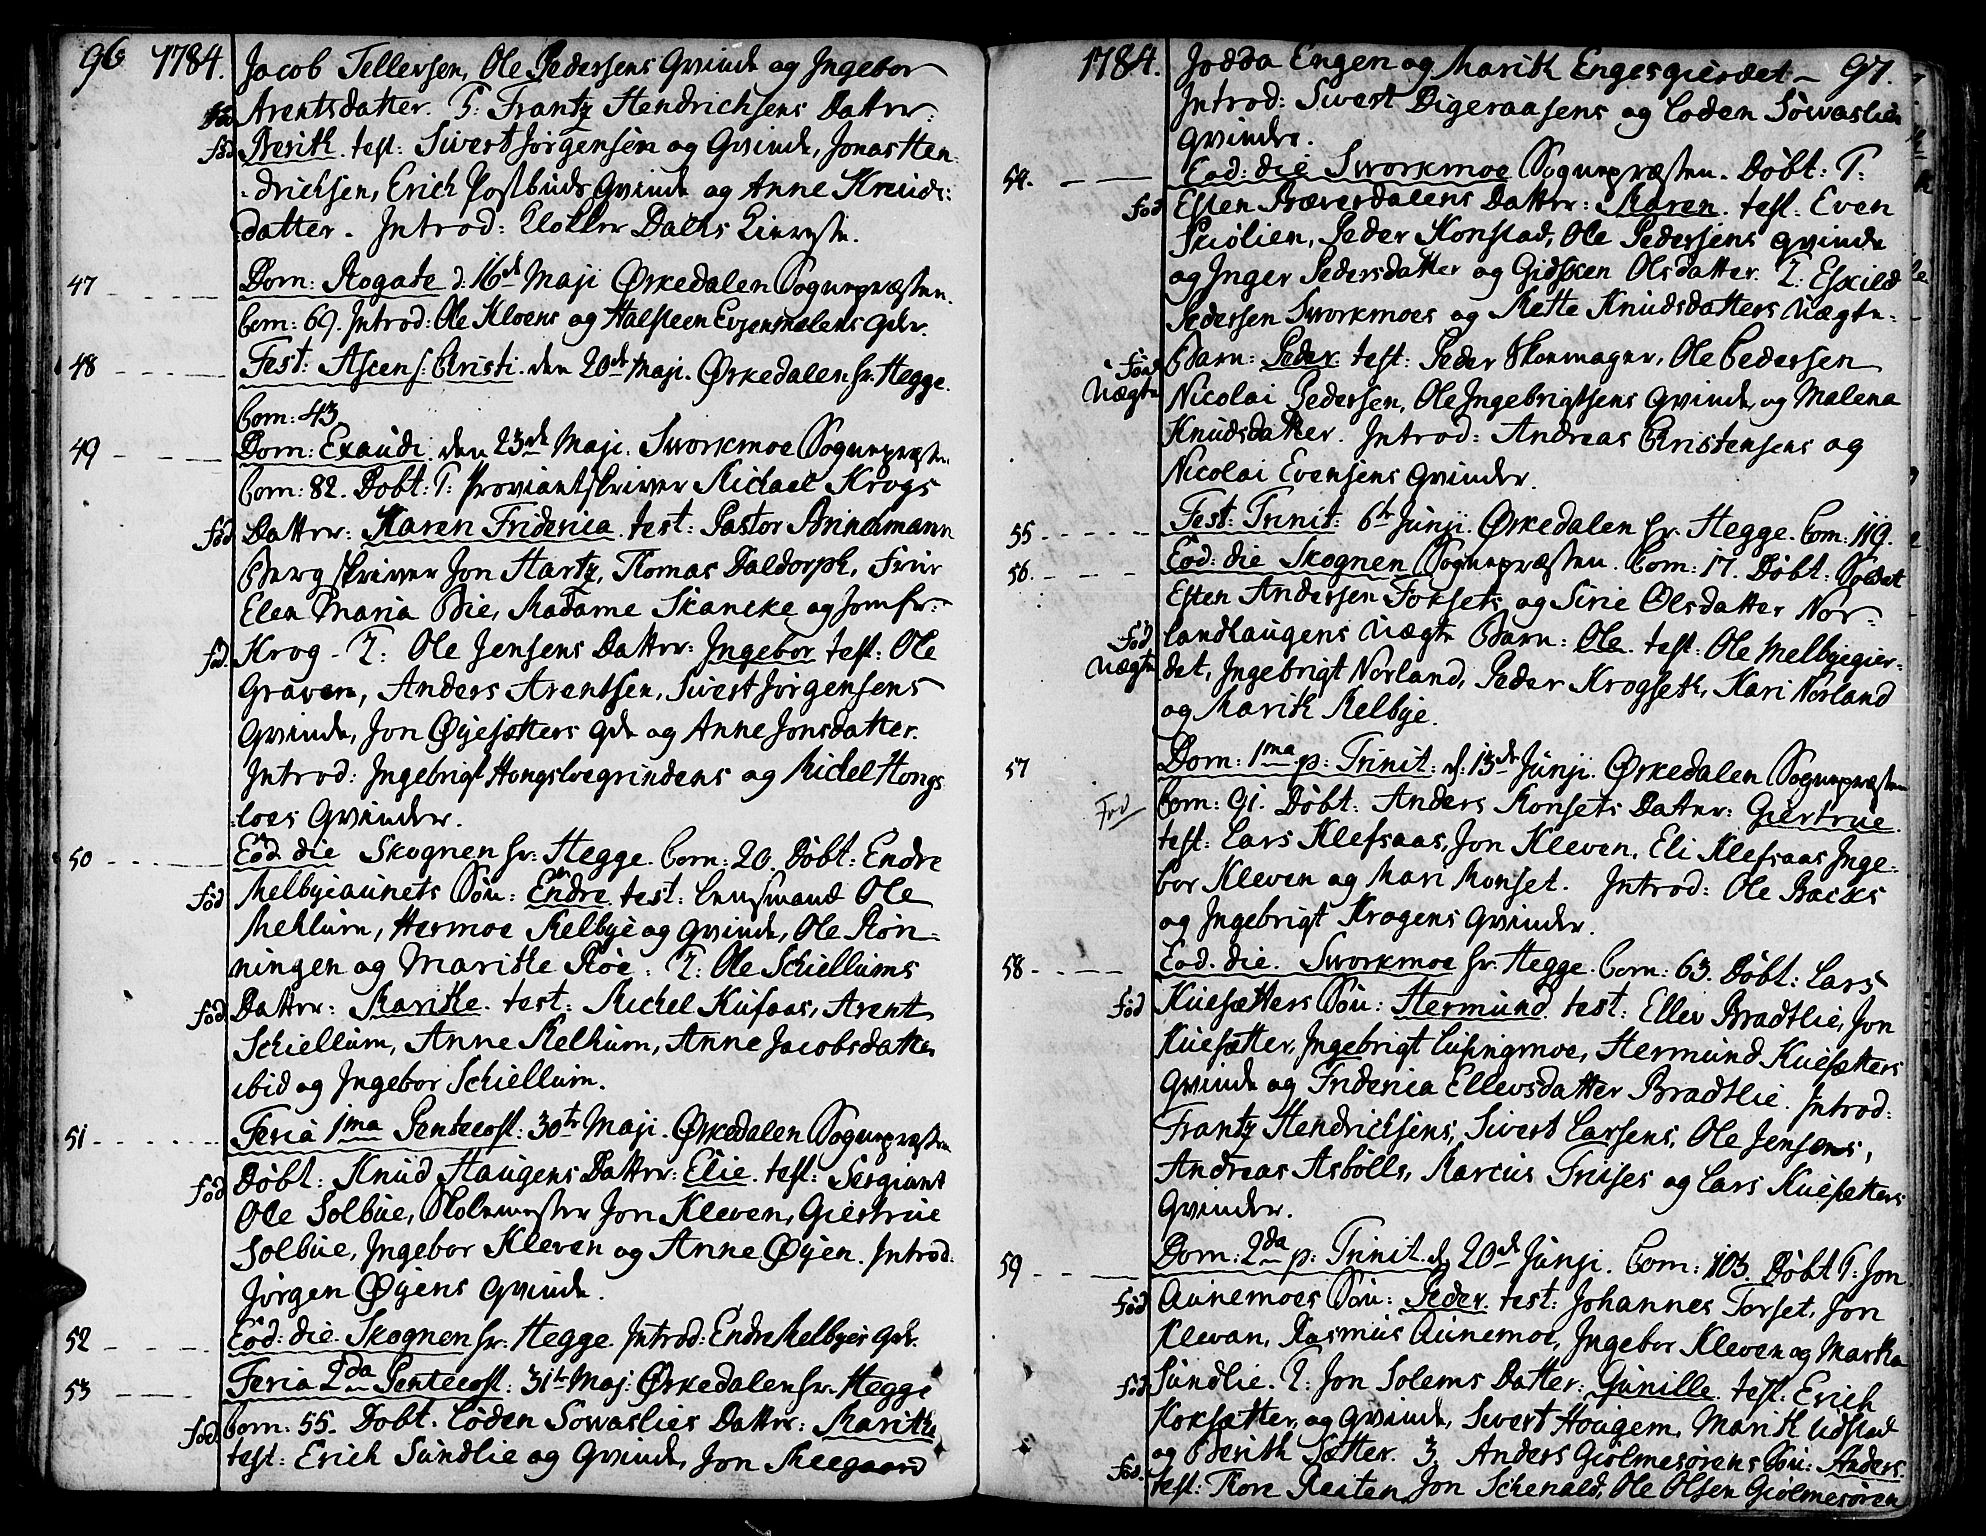 96 1784. Jacob Tellersen, Ole Pedersens Qvinde og Ingebor
Arentsdatter. T: Frantz Hendrichsens Datter:
fød Berith. test: Sivert Jørgensøn og Qvinde, Jonas Hen-
-drichsen, Erich Postbuds Qvinde og Anne Knuds:
datter. Introd: Klokker Dahls Kiereste.
47 Dom: Rogate d: 16de Maji Ørkedalen Sognepræsten.
Com: 69. Introd: Ole Kloens og Halsteen Evjensmælens Qdr.
48 Fest: Ascens: Christi. den 20de Maji. Ørkedalen hr. Hegge.
Com: 43.
49 Dom: Exaudi. den 23de Maji. Svorkmoe Sognepræsten
Com: 82. Døbt: T: Proviantskriver Michael Krogs
fød Datter: Karen Friderica. test: Pastor Brinckmann
Bergskriver Jon Hartz, Thomas Daldorph, Frue
Elen Maria Bie, Madame Skancke og Jomfr:
fød Krog. T: Ole Jensens Datter: Ingebor test: Ole
Graven, Anders Arentsen, Sivert Jørgensens
Qvinde, Jon Øyesætters Qde og Anne Jonsdatter.
Introd: Ingebrigt Hongsloegrindens og Michel Hongs
-loes Qvinder.
50 Eod: die Skognen hr: Hegge. Com: 20. Døbt: Endre
fød Melbyeaunets Søn: Endre. test: Lensmand Ole
Mehlum, Hermoe Melbye og Qvinde, Ole Røn-
ningen og Marithe Røe. T: Ole Schiellums
fød Datter: Marithe. test: Michel Kufaas, Arent
Schiellum, Anne Melhum, Anne Jacobsdatter
ibid og Ingebor Schiellum.
51 Feria 1ma Pentecost: 30te Maji. Ørkedalen Sognepræsten
fød Døbt: Knud Haugens Datter: Elie. test: Sergiant
Ole Solbue, Skolemester Jon Kleven, Giertrue
Solbue, Ingebor Kleven og Anne Øyen. Introd:
Jørgen Øyens Qvinde.
52 Eod: die. Skognen hr: Hegge. Introd: Endre Melbyes Qde.
53 Feria 2da Pentecost: 31te Maj: Ørkedalen hr. Hegge
fød. Com: 55. Døbt. Loden Sowaslies Datter: Marithe
test: Erich Sundlie og Qvinde, Jon Meegaard
1784. Jodda Engen og Marith Engesgierdet - 97.
Introd: Sivert Digeraasens og Loden Sowaslies
Qvinder.
54. Eod: die Svorkmoe Sognepræsten. Døbt: T:
fød Esten Bæverdalens Datter: Maren. test: Even
Skiølien, Peder Konstad, Ole Pedersens Qvinde
og Inger Pedersdatter og Gidsken Olsdatter. T: Eskild
Pedersen Svorkmoes og Mette Knudsdatters Uægte
fød Uægte Barn: Peder. test: Peder Skomager, Ole Pedersen
Nicolai Pedersen, Ole Ingebrigtsens Qvinde, og Malena
Knudsdatter. Introd: Andreas Christensens og
Nicolai Evensens Qvinder.
55 Fest: Trinit: 6te Junji. Ørkedalen hr. Hegge. Com: 119.
56. Eod: die Skognen Sognepræsten. Com: 17. Døbt: Soldat
Esten Andersen Foksets og Sirie Olsdatter Nor-
fød Uægte landlaugens Uægte Barn: Ole. test: Ole Melbyegier-
det, Ingebrigt Norland, Peder Krogseth, Kari Norland
og Marith Melbye.
57 Dom: 1ma p: Trinit: d: 13de Junji. Ørkedalen Sognepræsten
Fød Com: 91. Døbt: Anders Monsets Datter: Giertrue.
test: Lars Klefsaas, Jon Kleven, Eli Klefsaas Inge-
bor Kleven og Mari Monset. Introd: Ole Backs
og Ingebrigt Krogens Qvinder.
58 Eod. die. Svorkmoe hr: Hegge. Com: 63. Døbt: Lars
fød Kuesætters Søn: Hermund. test: Ellev Bradtlie, Jon
Kuesætter, Ingebrigt Lusingmoe, Hermund Kuesætters
Qvinde og Friderica Ellevsdatter Bradtlie. Introd:
Frantz Hendrichsens, Sivert Larsens, Ole Jensens,
Andreas Asbølls, Marcus Truses og Lars Kuesætters
Qvinder.
59 Dom: 2da p: Trinit. d, 20de Junji. Com: 103. Døbt T: Jon
fød Aunemoes Søn: Peder. test: Johannes Forset, Jon
Klevan, Rasmus Aunemoe, Ingebor Kleven og Martha
fød Sundlie. T: Jon Solems Datter: Gunille. test: Erich
Koksætter, og Qvinde, Sivert Hougen, Marith Udstad
fød. og Berith Sætter. 3. Anders Giølmesørens Søn: Anders.
test: Tore Reiten, Jon Schenald, Ole Olsen Giølmesøren